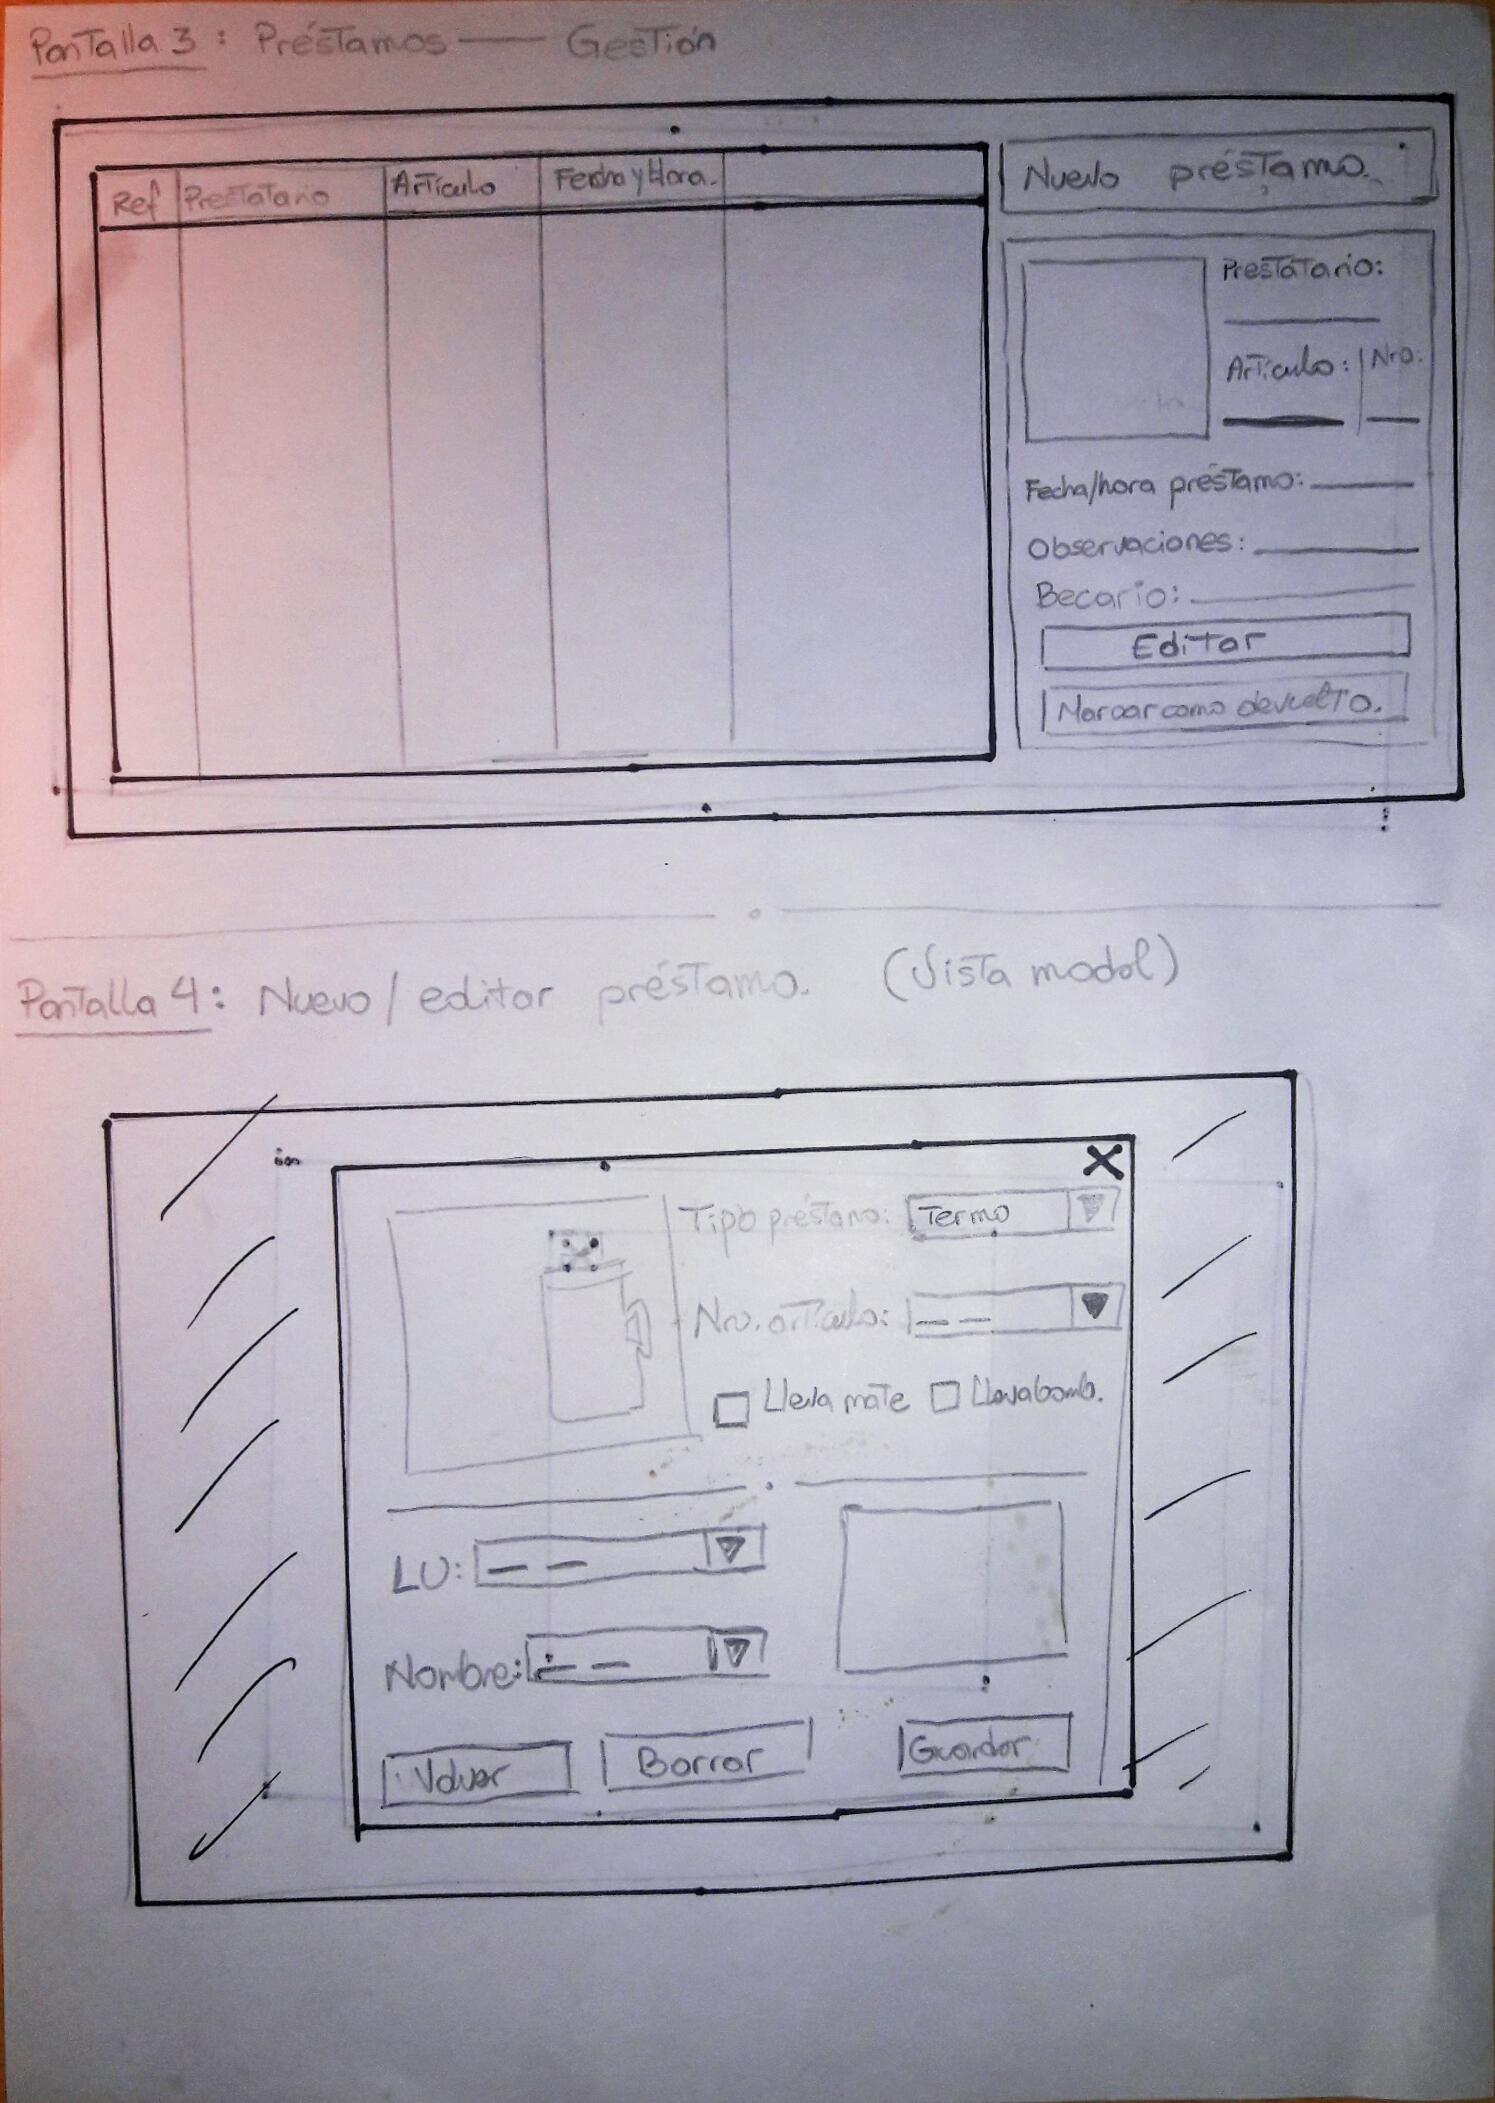 Pantalla 3 : Préstamos — Gestión
Ref Prestatario Artículo Fecha y Hora.
Nuevo préstamo.
Prestatario:
Artículo: Nro.
Fecha/hora préstamo:
Observaciones:
Becario:
Editar
Marcar como devuelto.
Pantalla 4: Nuevo / editar préstamo. (Vista modal)
X
Tipo préstamo: Termo
Nro. artículo: — —
Lleva mate Lleva bomb.
LU: — —
Nombre: — —
Volver Borrar Guardar